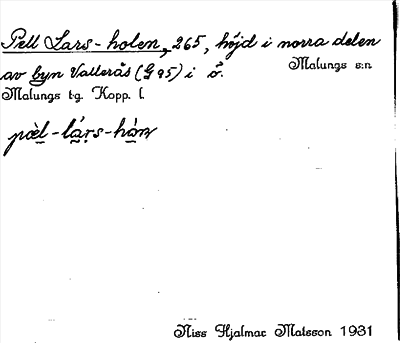 Pell Lars-holen, 265, höjd i norra delen
av byn Vallerås (G 95) i ö.
Malungs s:n
Malungs t:g. Kopp. l.
pæ̀l-lá̱ṛs-hò̱n
Niss Hjalmar Matsson 1931